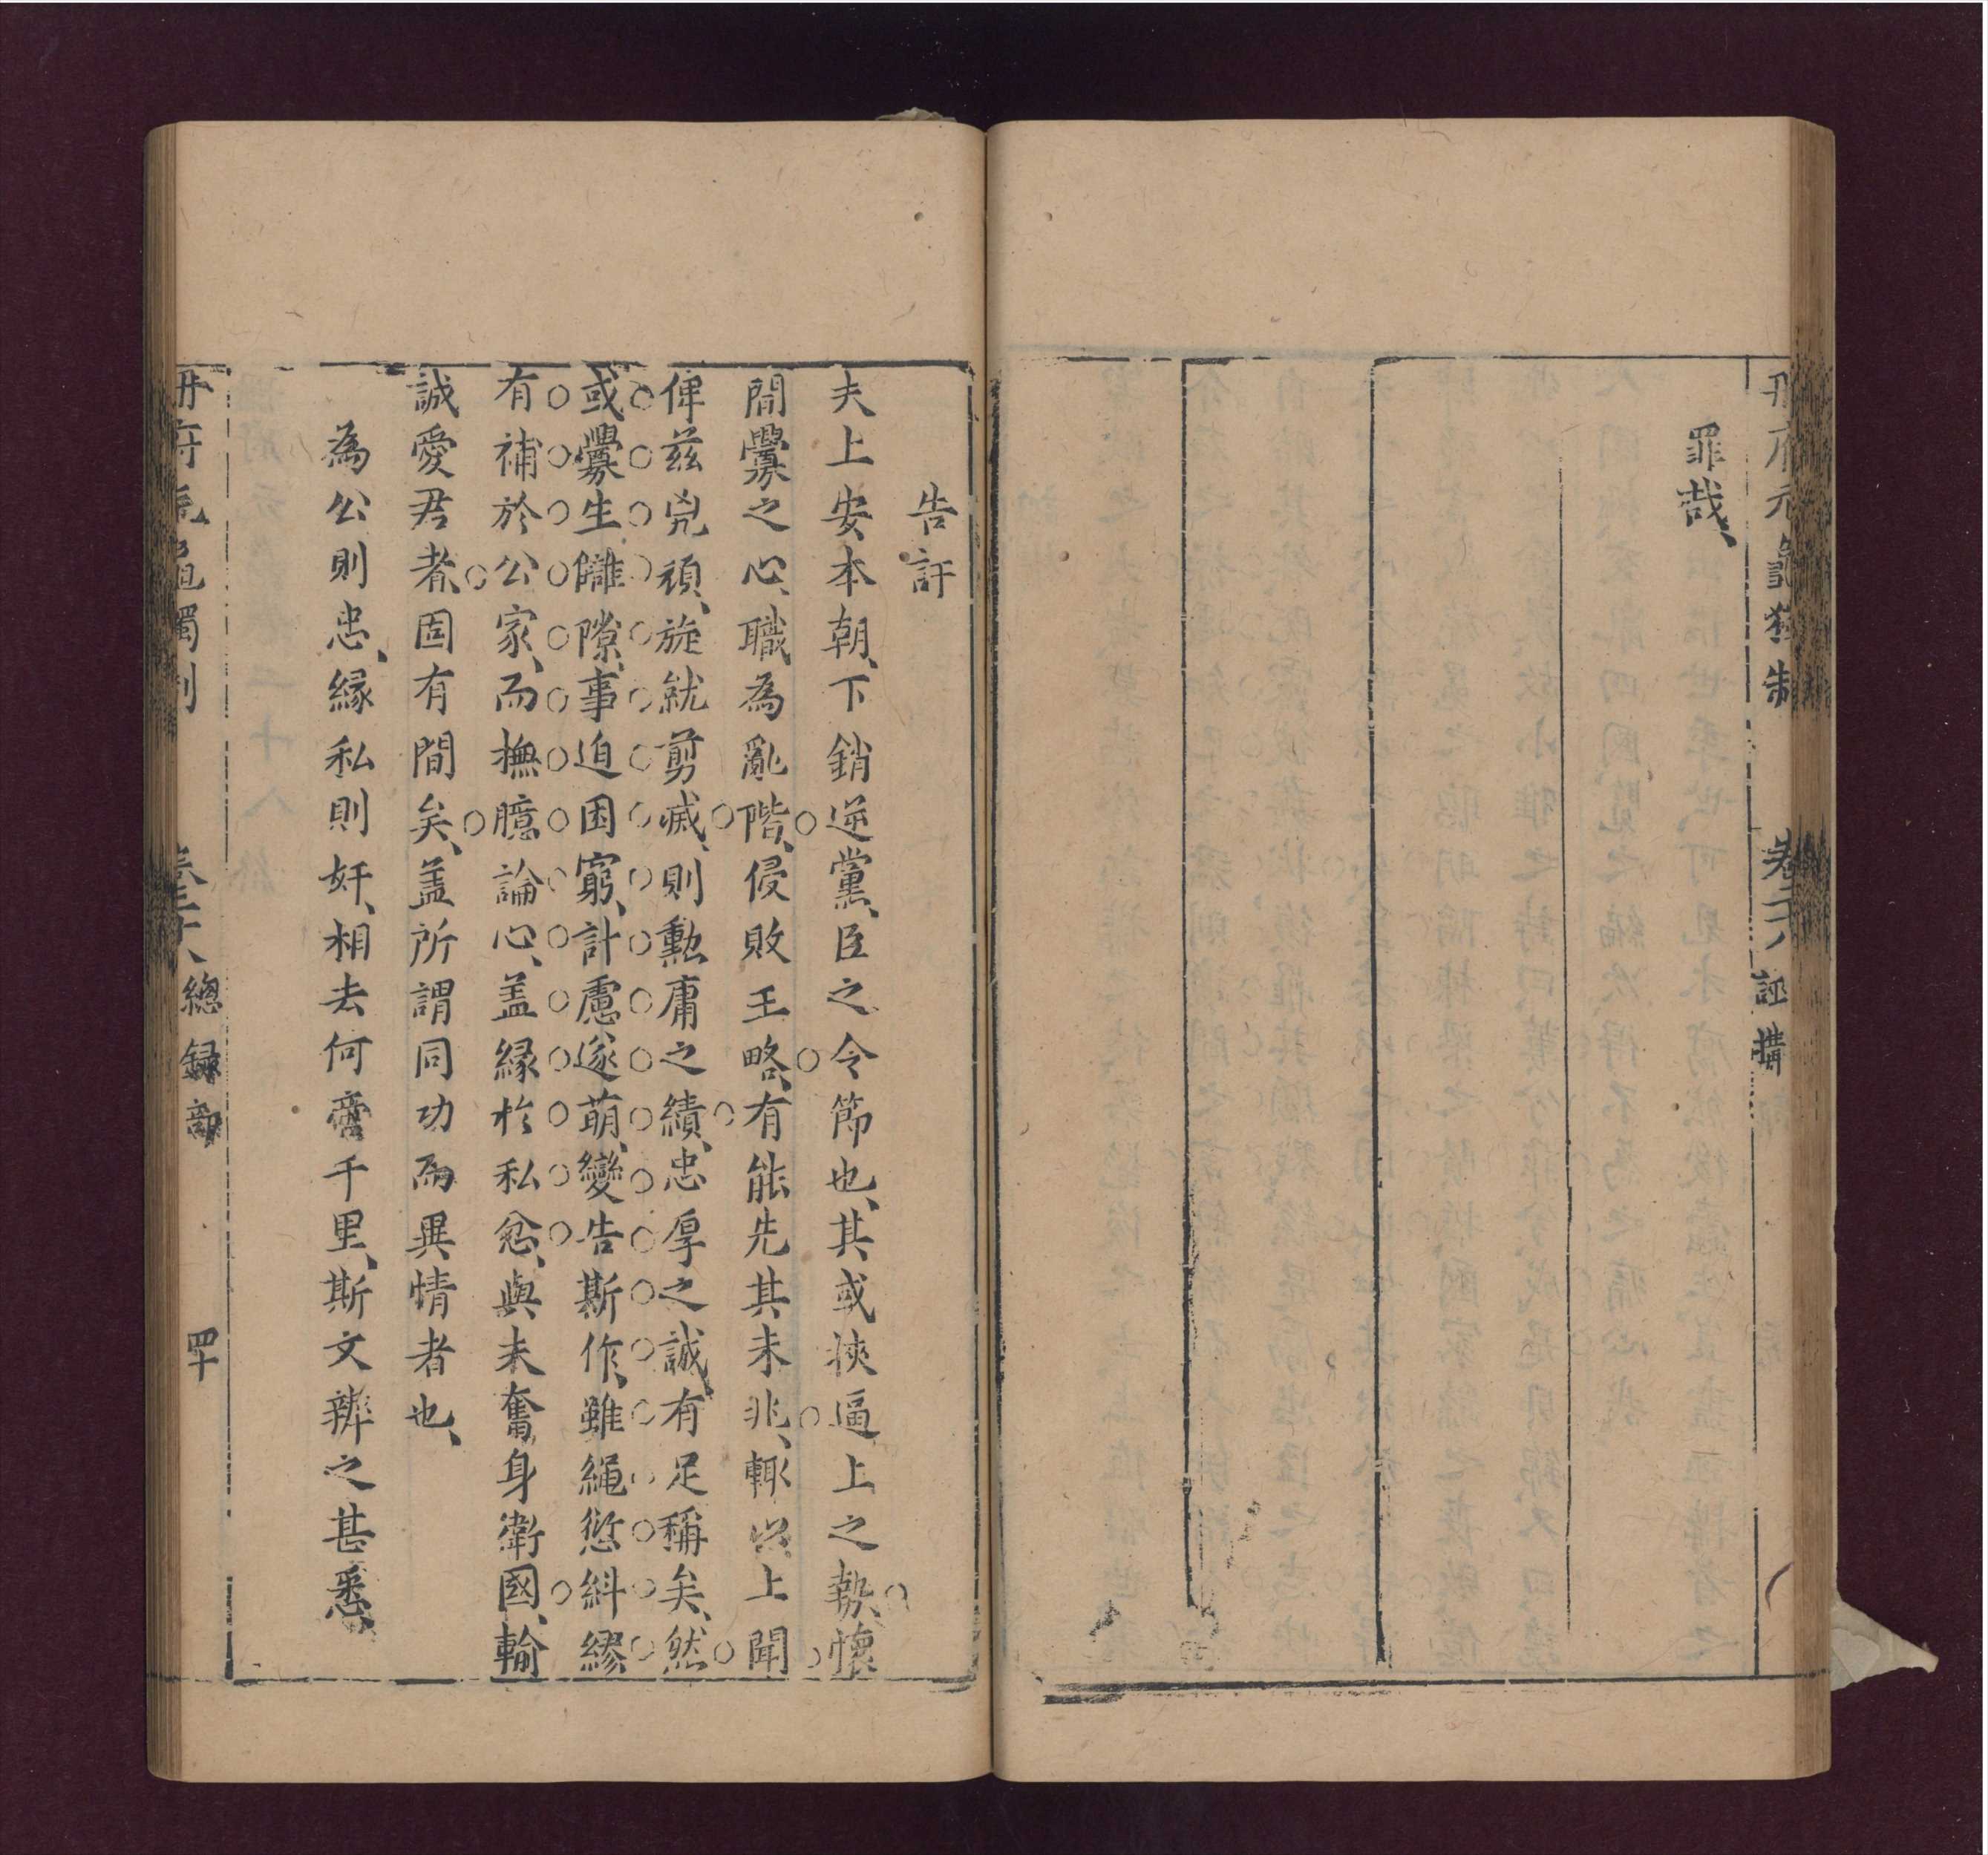 冊府元龜獨制
卷二十八
誣搆
罪哉、
告訐
夫上安本朝、下銷逆黨、臣之令節也、其或狹逼上之𫝑、懷
間釁之心、職為亂階、侵敗王略、有能先其未兆、輙以上聞
俾兹兇頑、旋就剪滅、則勲庸之績、忠厚之誠、有足稱矣、然
或釁生讎隙、事迫困窮、計慮遂萌、變告斯作、雖繩愆糾繆
有補於公家、而撫臆論心、盖縁於私忿、與夫奮身衛國、輸
誠愛君者、固有間矣、盖所謂同功而異情者也、
為公則忠、縁私則奸、相去何啻千里、斯文辨之甚悉、
冊府元龜獨制
卷二十八
總録部
四十